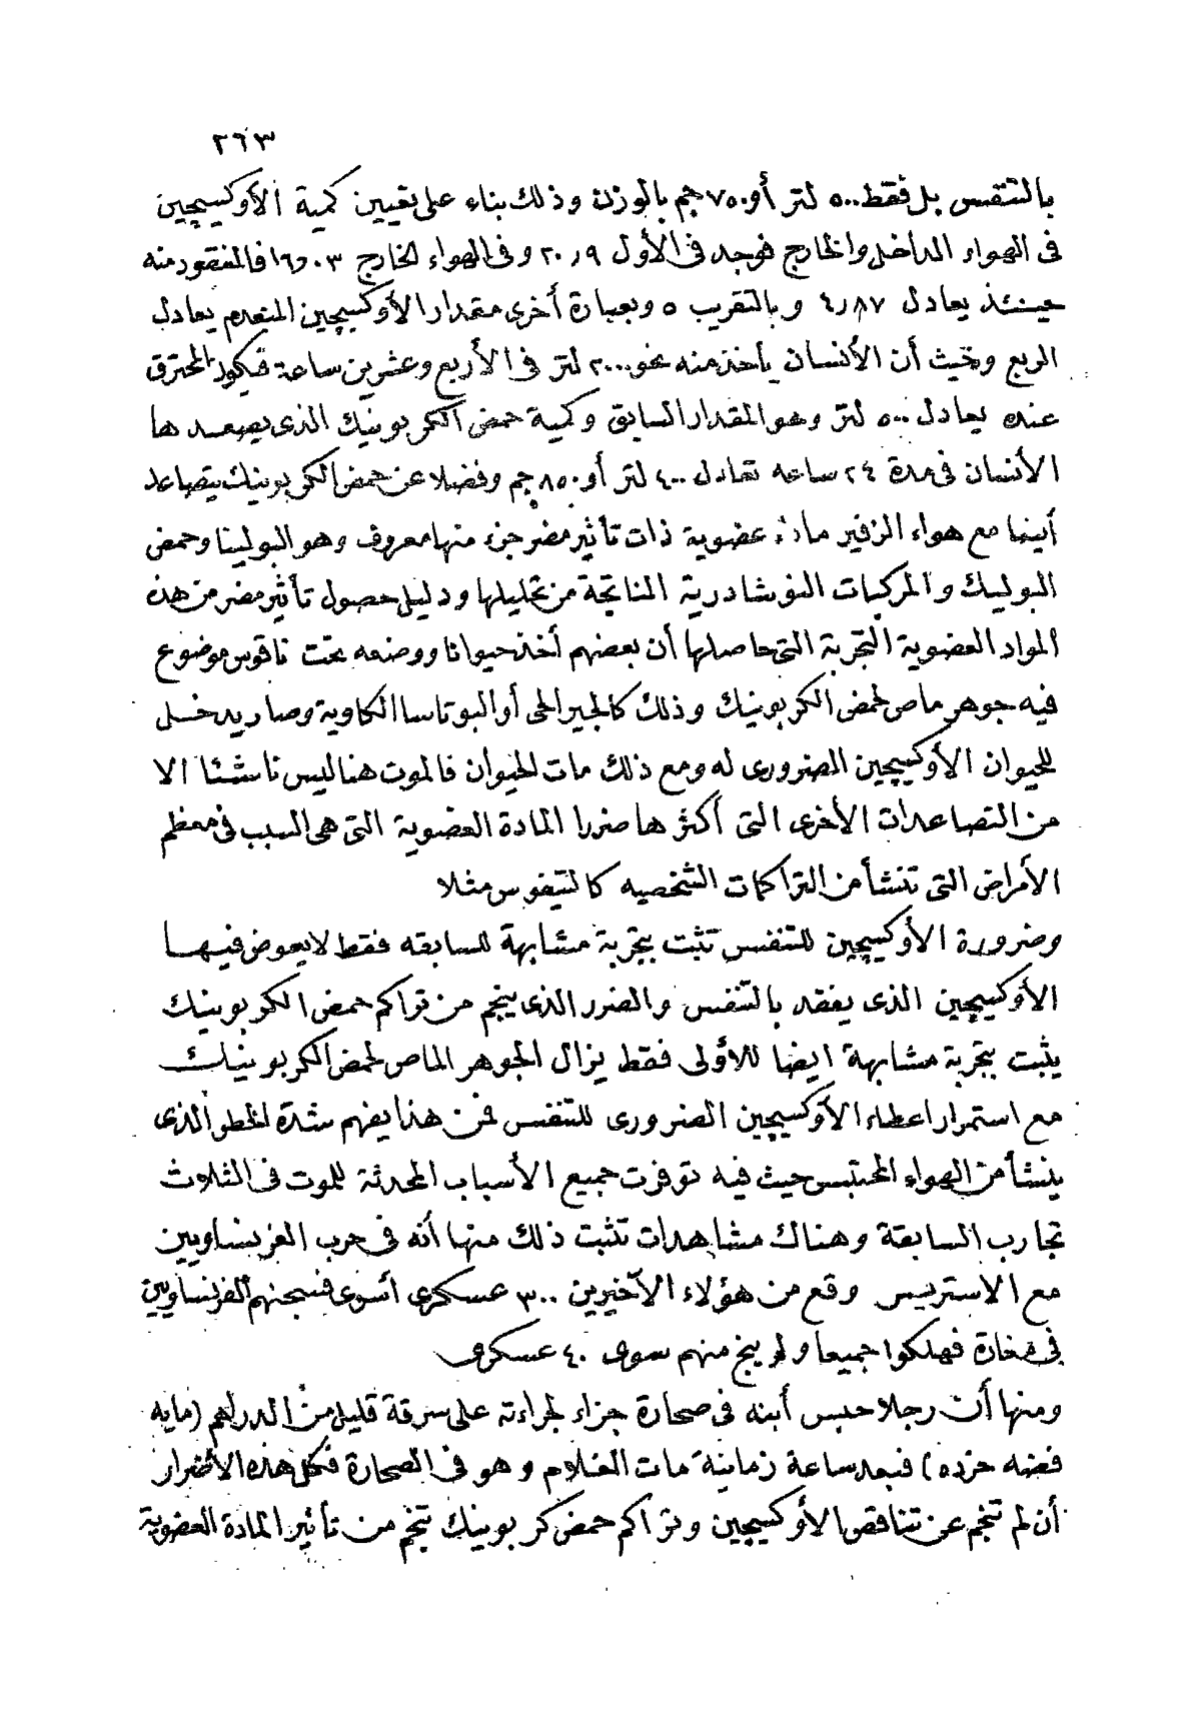 ٢٦٣
بالتنفس بل فقط ٥٠٠ لتر أو ٧٥٠ جم بالوزن وذلك بناء على تعيين كمية الأوكسيچين
فى الهواء الداخل والخارج فوجد فى الأول ٢٠٫٩ وفى الهواء الخارج ١٦٫٠٣ فالمفقود منه
حينئذ يعادل ٤٫٨٧ وبالتقريب ٥ وبعبارة أخرى مقدار الأوكسيچين المنعدم يعادل
الربع وبحيث أن الأنسان يأخذ منه نحو ٢٠٠٠ لتر فى الأربع وعشرين ساعة فيكون المحترق
عنده يعادل ٥٠٠ لتر وهو المقدار السابق وكمية حمض الكربونيك الذى يصعدها
الأنسان فى مدة ٢٤ ساعه تعادل ٤٠٠ لتر أو ٨٥٠ جم وفضلا عن حمض الكربونيك يتصاعد
أيضا مع هواء الزفير مادة عضوية ذات تأثير مضر جزء منها معروف وهو البولينا وحمض
البوليك والمركبات النوشادرية الناتجة من تحليلها ودليل حصول تأثير مضر من هذه
المواد العضوية التجربة التى حاصلها أن بعضهم أخذ حيوانا ووضعه تحت ناقوس موضوع
فيه جوهر ماص لحمض الكربونيك وذلك كالجير الحى أو البوتاسا الكاوية وصار يدخل
للحيوان الأوكسيچين الضرورى له ومع ذلك مات الحيوان فالموت هنا ليس ناشئا الا
من التصاعدات الأخرى التى أكثرها ضررا المادة العضوية التى هى السبب فى معظم
الأمراض التى تنشأ من التراكمات الشخصيه كالتيفوس مثلا
وضرورة الأوكسيچين للتنفس تثبت بتجربة مشابهة للسابقه فقط لا يعوض فيها
الأوكسيچين الذى يفقد بالتنفس والضرر الذى ينجم من تراكم حمض الكربونيك
يثبت بتجربة مشابهة ايضا للأولى فقط يزال الجوهر الماص لحمض الكربونيك
مع استمرار اعطاء الأوكسيچين الضرورى للتنفس فمن هذا يفهم شدة الخطر الذى
ينشأ من الهواء المحتبس حيث فيه توفرت جميع الأسباب المحدثة للموت فى الثلاث
تجارب السابقة وهناك مشاهدات تثبت ذلك منها أنه فى حرب الفرنساويين
مع الاستريس وقع من هؤلاء الآخيرين ٣٠٠ عسكرى أسرى فسجنهم الفرنساويين
فى مغارة فهلكوا جميعا ولم ينج منهم سوى ٤٠ عسكرى
ومنها أن رجلا حبس أبنه فى صحارة جزاء لجراءته على سرقة قليل من الدراهم (مايه
فضه خرده) فبعد ساعة زمانية مات الغلام وهو فى الصحارة فكل هذه الأضرار
أن لم تنجم عن تناقص الأوكسيچين وتراكم حمض كربونيك تنجم من تأثير المادة العضوية